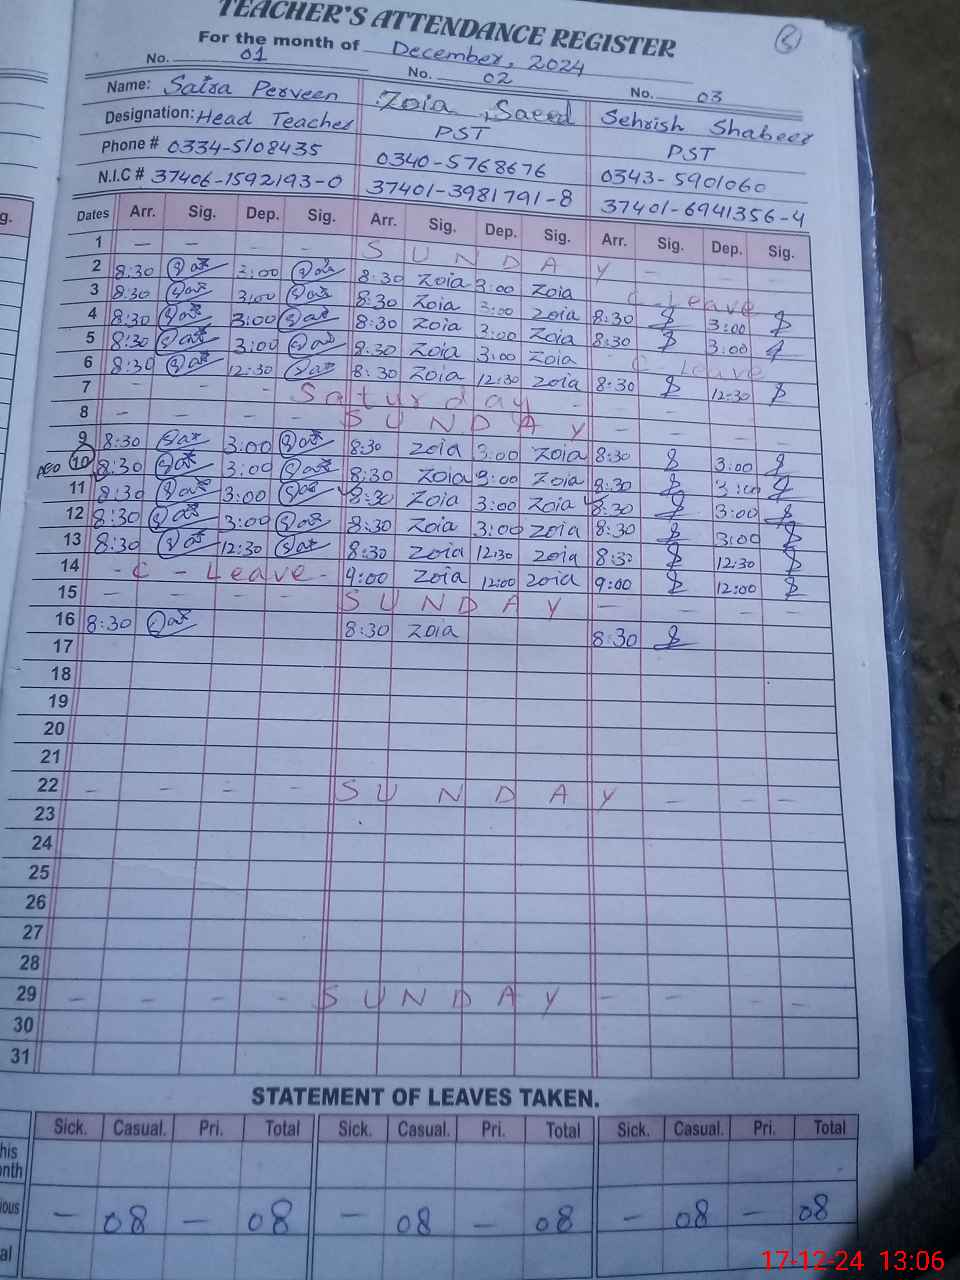 TEACHER'S ATTENDANCE REGISTER
3
For the month of December, 2024
No. 01 No. 02 No. 03
Name: Saira Perveen Zoia Saeed Sehrish Shabeer
Designation: Head Teacher PST PST
Phone # 0334-5108435 0340-5768676 0343-5901060
N.I.C # 37406-1592193-0 37401-3981791-8 37401-6941356-4
Dates Arr. Sig. Dep. Sig. Arr. Sig. Dep. Sig. Arr. Sig. Dep. Sig.
1 — — - - S U N D A Y - - -
2 8:30 3:00 8:30 Zoia 3:00 Zoia C - Leave
3 8:30 3:00 8:30 Zoia 3:00 Zoia 8:30 3:00
4 8:30 3:00 8:30 Zoia 3:00 Zoia 8:30 3:00
5 8:30 3:00 8:30 Zoia 3:00 Zoia C - Leave
6 8:30 12:30 8:30 Zoia 12:30 Zoia 8:30 12:30
7 - - - Saturday - - - -
8 - - - - S U N D A Y - - - -
9 8:30 3:00 8:30 Zoia 3:00 Zoia 8:30 3:00
10 8:30 3:00 8:30 Zoia 3:00 Zoia 8:30 3:00
11 8:30 3:00 8:30 Zoia 3:00 Zoia 8:30 3:00
12 8:30 3:00 8:30 Zoia 3:00 Zoia 8:30 3:00
13 8:30 12:30 8:30 Zoia 12:30 Zoia 8:30 12:30
14 - C - Leave - 9:00 Zoia 12:00 Zoia 9:00 12:00
15 - - - - S U N D A Y - - - -
16 8:30 8:30 Zoia 8:30
17
18
19
20
21
22 - - - - S U N D A Y - - -
23
24
25
26
27
28
29 - - - - S U N D A Y - - - -
30
31
STATEMENT OF LEAVES TAKEN.
Sick. Casual. Pri. Total Sick. Casual. Pri. Total Sick. Casual. Pri. Total
his
nth
ious — 08 — 08 — 08 — 08 — 08 — 08
al
17-12-24 13:06